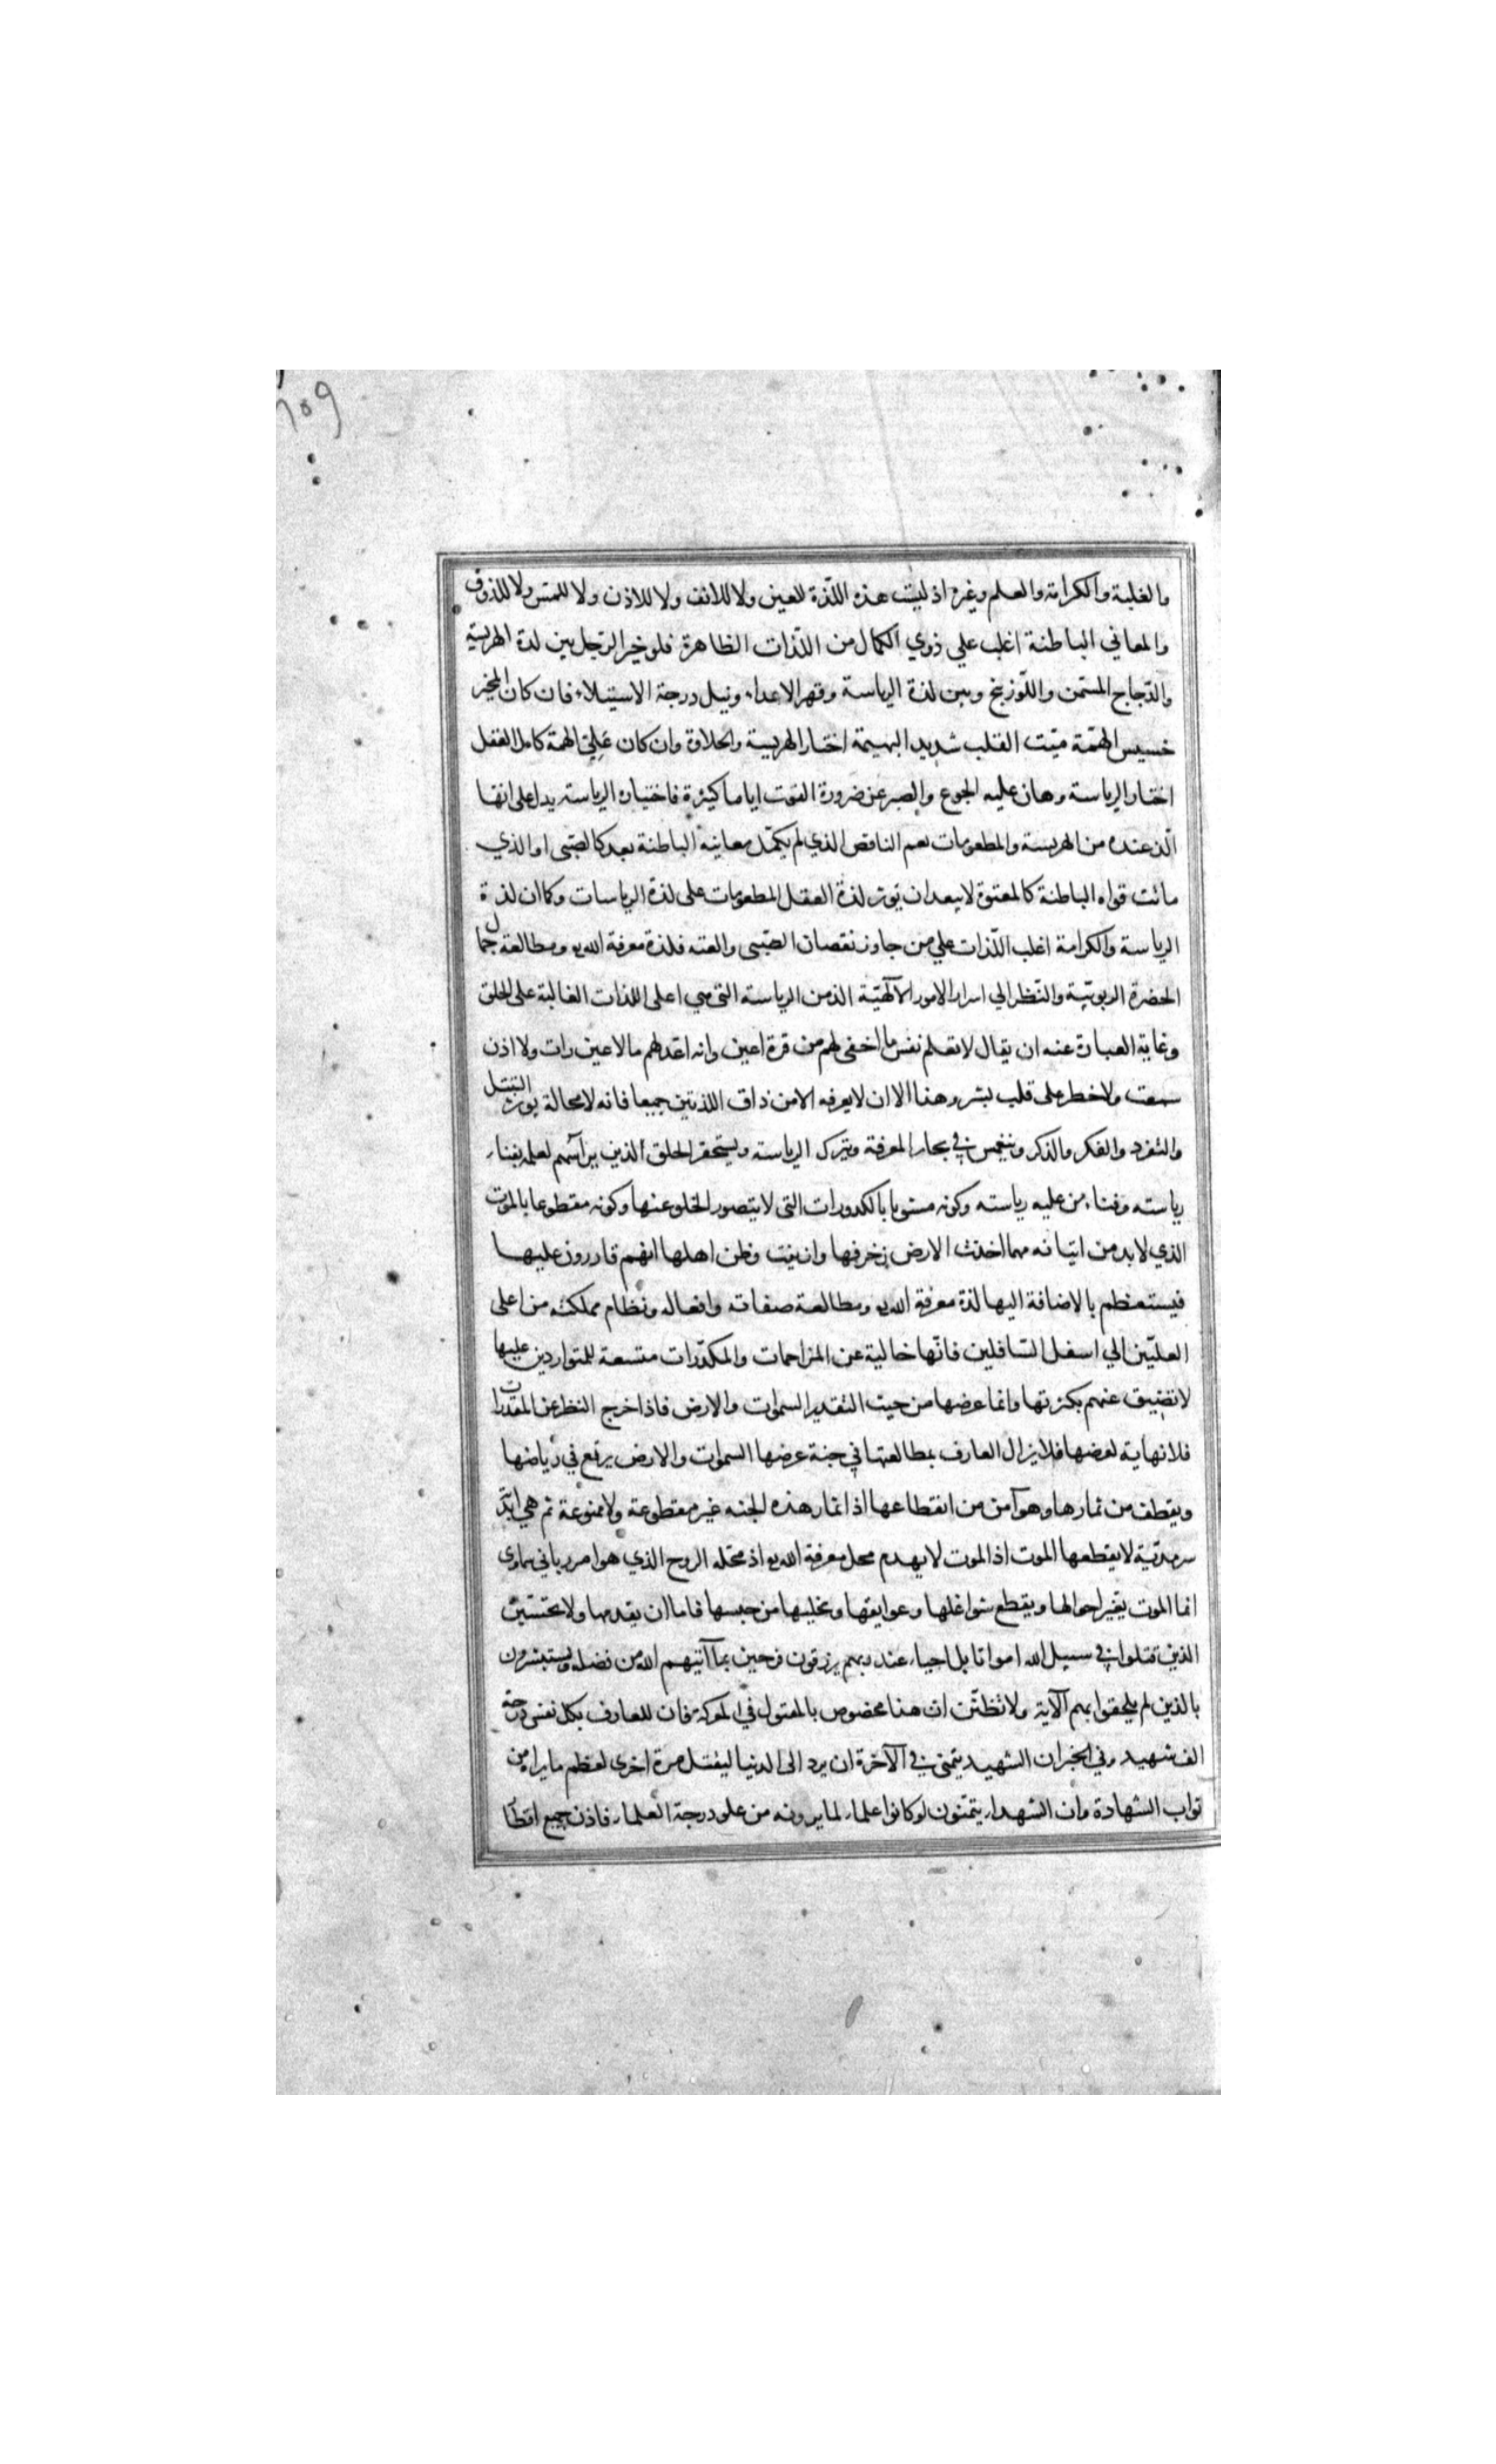 ٦٥٩
والغلبة والكرامة والعلم وغيره اذ ليست هذه اللذة للعين ولا للانف ولا للاذن ولا للمس ولا للذوق
والمعاني الباطنة اغلب علي ذوي الكمال من اللذات الظاهرة فلو خير الرجل بين لذة الهريسة
والدّجاج المسمن واللّوزينج وبين لذة الرياسة وقهر الاعداء ونيل درجة الاستيلاء فان كان المخير
خسيس الهمّة ميّت القلب شديد البهيمة اختار الهريسة والحلاوة وان كان عَلِيّ الهمة كامل العقل
اختار الرياسة وهان عليه الجوع والصبر عن ضرورة القوت اياما كثيرة فاختياره الرياسة يدل على انها
الّذ عنده من الهريسة والمطعومات نعم الناقص الذي لم يكمّل معانيه الباطنة بعد كالصّبى او الذي
ماتت قواه الباطنة كالمعتوة لا يبعد ان توثر لذة العقل المطعومات على لذة الرياسات وكما ان لذة
الرياسة والكرامة اغلب اللّذات علي من جاوز نقصان الصّبى والعته فلذة معرفة الله تع ومطالعة جمال
الحضرة الربوبيّة والنّظر الي اسرار الامور الآلهيّة الذ من الرياسة التى هي اعلى اللذات الغالبة على الخلق
وغاية العبارة عنه ان يقال لا تعلم نفس ما اخفى لهم من قرة اعين وانه اعد لهم ما لا عين رات ولا اذن
سمعت ولا خطر على قلب بشر وهذا الان لا يعرفه الا من ذاق اللذتين جميعا فانه لا محالة يوثر التبتل
والتفرد والفكر والذكر وينغمس في بحار المعرفة ويترك الرياسة ويستحقر الخلق الذين يرأسهم لعلمه بفناء
رياسته وفناء من عليه رياسته وكونه مشوبا بالكدورات التى لا يتصور الخلو عنها وكونه مقطوعا بالموت
الذي لا بد من اتيانه مهما اخذت الارض زخرفها وازينت وظن اهلها انهم قادرون عليها
فيستعظم بالاضافة اليها لذة معرفة الله تع ومطالعة صفاته وافعاله ونظام مملكته من اعلى
العليّين الي اسفل السّافلين فانّها خالية عن المزاحمات والمكدّرات متسعة للمتواردين عليها
لا تضيق عنهم بكثرتها وانما عرضها من حيث التقدير السموات والارض فاذا خرج النظر عن المقدرات
فلا نهاية لعرضها فلا يزال العارف بمطالعتها في جنة عرضها السموات والارض يرتع في رياضها
ويقطف من ثمارها وهو آمن من انقطاعها اذ اثمار هذه الجنه غير مقطوعة ولا ممنوعة ثم هي ابدّ
سرمديّة لا يقطعها الموت اذ الموت لا يهدم محل معرفة الله تع اذ محله الروح الذي هو امر رباني سماوى
انما الموت يغير احوالها ويقطع شواغلها وعوايقها ويخليها من حبسها فاما ان يقدمها ولا تحسبنّ
الذين قتلوا في سبيل الله امواتا بل احياء عند ربهم يرزقون فرحين بما آتيهم الله من فضله ويستبشرون
بالذين لم يلحقوا بهم الآية ولا تظنّن ان هذا مخصوص بالمقتول في المعركة فان للعارف بكل نفس درجة
الف شهيد وفي الخبر ان الشهيد يتمنى في الآخرة ان يرد الى الدنيا ليقتل مرة اخرى لعظم ما يراه من
ثواب الشهادة وان الشهداء يتمّنون لو كانوا علماء لما يرونه من علو درجة العلماء فاذن جميع اقطا